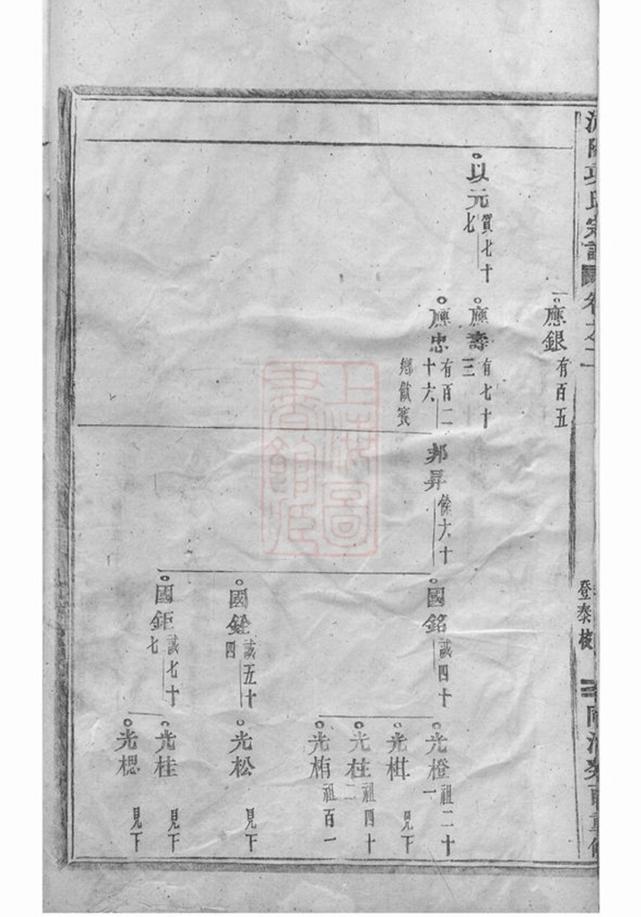 氏宗譜
卷之二
登泰校
同治癸酉重修
應銀 有百五
以元 質七十七
應壽 有七十三
應忠 有百二十六
鄉飲賓
邦昇 餘六十
國銘 誠四十
國銓 誠五十四
國鉅 誠七十七
光橙 祖二十一
光 見下
光柱 祖四十二
光栯 祖百一
光松 見下
光桂 見下
光楒 見下
上海圖書館藏